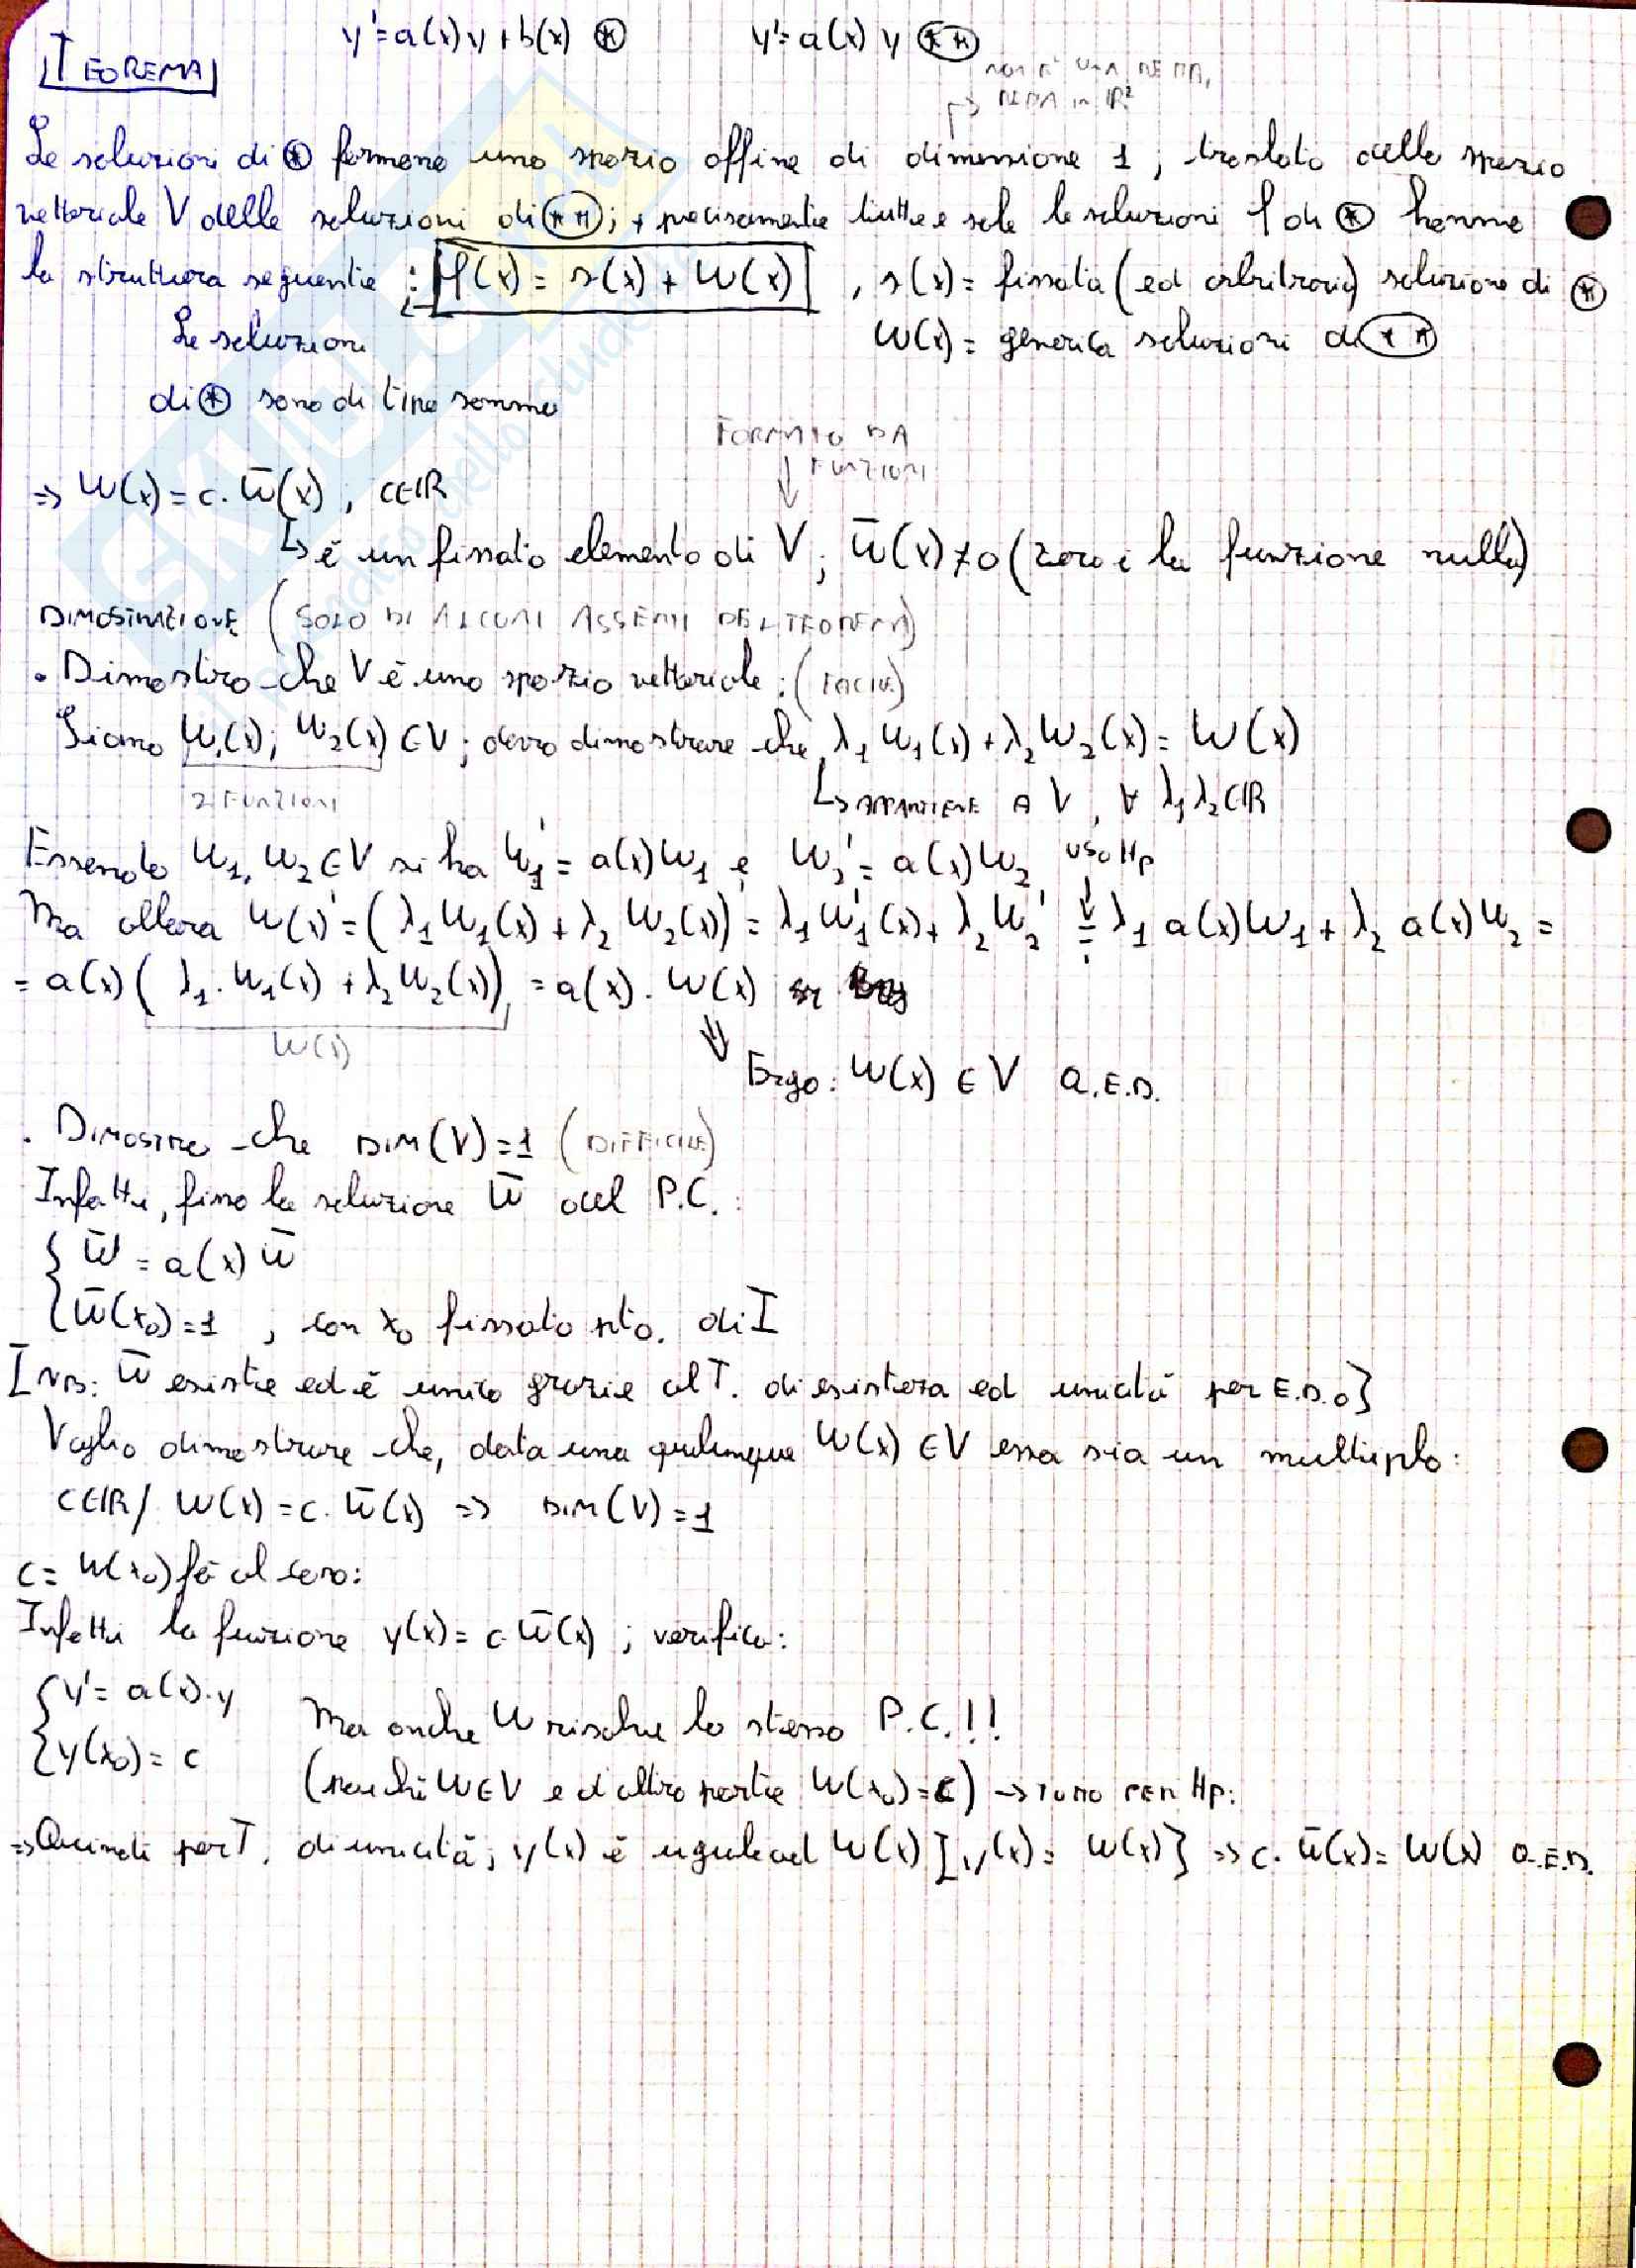 y'=a(x)y+b(x) ⊛ y'=a(x)y (**)
TEOREMA
NON È UNA RETTA,
RETTA in IR²
Le soluzioni di ⊛ formano uno spazio affine di dimensione 1, traslato dello spazio
vettoriale V delle soluzioni di (**); + precisamente tutte e sole le soluzioni f di ⊛ hanno
la struttura seguente: f(x) = s(x) + w(x) , s(x) = fissata (ed arbitraria) soluzione di ⊛
Le soluzioni w(x) = generica soluzioni di (**)
di ⊛ sono di tipo somma
FORMATO DA
FUNZIONI
⇒ w(x) = c. w̄(x), c∈IR
↳ è un fissato elemento di V; w̄(x)≠0 (zero è la funzione nulla)
DIMOSTRAZIONE (SOLO DI ALCUNI ASSERTI DEL TEOREMA)
• Dimostro che V è uno spazio vettoriale: (FACILE)
Siano w₁(x); w₂(x) ∈V; devo dimostrare che λ₁w₁(x)+λ₂w₂(x) = w(x)
2 FUNZIONI ↳ APPARTIENE A V, ∀ λ₁λ₂∈IR
Essendo w₁, w₂∈V si ha w₁' = a(x)w₁ e w₂' = a(x)w₂ uso Hp
Ma allora w(x)' = (λ₁w₁(x) + λ₂w₂(x))' = λ₁w₁'(x) + λ₂w₂' = λ₁ a(x)w₁ + λ₂ a(x)w₂ =
= a(x) (λ₁.w₁(x) + λ₂w₂(x)) = a(x). w(x)
w(x)
⇓ Ergo: w(x) ∈ V Q.E.D.
. DIMOSTRO che DIM(V)=1 (DIFFICILE)
Infatti, fisso la soluzione w̄ del P.C.:
{ w̄' = a(x) w̄
{ w̄(x₀)=1 , con x₀ fissato pto. di I
[NB: w̄ esiste ed è unico grazie al T. di esistenza ed unicità per E.D.O]
Voglio dimostrare che, data una qualunque w(x) ∈V essa sia un multiplo:
c∈IR/ w(x) = c. w̄(x) ⇒ DIM(V)=1
c = w(x₀) fa al caso:
Infatti la funzione y(x) = c w̄(x) ; verifica:
{ y' = a(x).y Ma anche w risolve lo stesso P.C.!!
{ y(x₀) = c (poiché w∈V e d'altra parte w(x₀)=c) → TUTTO PER Hp:
⇒ Quindi per T. di unicità, y(x) è uguale ad w(x) [y(x) = w(x)] ⇒ c. w̄(x) = w(x) Q.E.D.